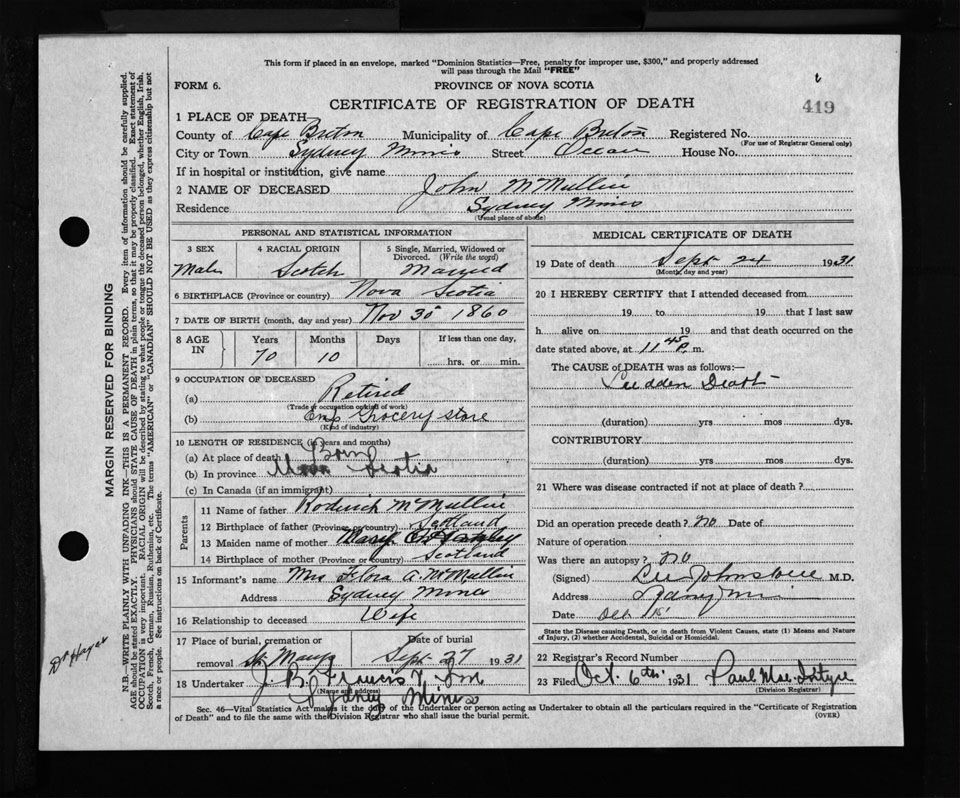 This form if placed in an envelope, marked "Dominion Statistics—Free, penalty for improper use, $300," and properly addressed
will pass through the Mail "FREE"
FORM 6.
PROVINCE OF NOVA SCOTIA
419
CERTIFICATE OF REGISTRATION OF DEATH
1 PLACE OF DEATH
County of Cape Breton Municipality of Cape Breton Registered No.
(For use of Registrar General only)
City or Town Sydney Mines Street Ocean House No.
If in hospital or institution, give name
2 NAME OF DECEASED John McMullin
Residence Sydney Mines
(Usual place of abode)
PERSONAL AND STATISTICAL INFORMATION
3 SEX 4 RACIAL ORIGIN 5 Single, Married, Widowed or Divorced. (Write the word)
Male Scotch Married
6 BIRTHPLACE (Province or country) Nova Scotia
7 DATE OF BIRTH (month, day and year) Nov 30 1860
8 AGE IN Years Months Days If less than one day,
70 10 hrs. or min.
9 OCCUPATION OF DECEASED
(a) Retired
(Trade or occupation or kind of work)
(b) Emp Grocery store
(Kind of industry)
10 LENGTH OF RESIDENCE (in years and months)
(a) At place of death Born
(b) In province Nova Scotia
(c) In Canada (if an immigrant)
Parents
11 Name of father Roderick McMullin
12 Birthplace of father (Province or country) Scotland
13 Maiden name of mother Mary
14 Birthplace of mother (Province or country) Scotland
15 Informant's name Mrs Flora A. McMullin
Address Sydney Mines
16 Relationship to deceased Wife
17 Place of burial, cremation or removal St. Marys Date of burial Sept 27 1931
18 Undertaker J. B. Francis & Son
(Name and address)
Sydney Mines
MEDICAL CERTIFICATE OF DEATH
19 Date of death Sept 24 1931
(Month, day and year)
20 I HEREBY CERTIFY that I attended deceased from
19 to 19 that I last saw
h alive on 19 and that death occurred on
date stated above, at 11 45 P. m.
The CAUSE of DEATH was as follows:—
Sudden Death
(duration) yrs mos dys.
CONTRIBUTORY
(duration) yrs. mos. dys.
21 Where was disease contracted if not at place of death?
Did an operation precede death? no Date of
Nature of operation
Was there an autopsy? no
(Signed) Johnstone M.D.
Address Sydney Mines
Date Oct
State the Disease causing Death, or in death from Violent Causes, state (1) Means and Nature of Injury, (2) whether Accidental, Suicidal or Homicidal.
22 Registrar's Record Number
23 Filed Oct. 6th. 1931 Paul MacIntyre
(Division Registrar)
Sec. 46—Vital Statistics Act makes it the duty of the Undertaker or person acting as Undertaker to obtain all the particulars required in the "Certificate of Registration
of Death" and to file the same with the Division Registrar who shall issue the burial permit.
(OVER)
MARGIN RESERVED FOR BINDING
N.B.—WRITE PLAINLY WITH UNFADING INK—THIS IS A PERMANENT RECORD. Every item of information should be carefully supplied.
AGE should be stated EXACTLY. PHYSICIANS should STATE CAUSE OF DEATH in plain terms, so that it may be properly classified. Exact statement of
OCCUPATION is very important. RACIAL ORIGIN will be described by stating to what people or tongue the deceased person belonged, whether English, Irish,
Scotch, French, German, Russian, Ruthenian, etc. The terms "AMERICAN" or "CANADIAN" SHOULD NOT BE USED as they express citizenship but not
a race or people. See instructions on back of Certificate.
Dr Hayes